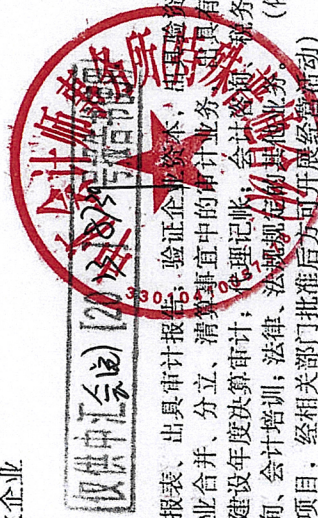 企业
仅供中汇会
报表、出具审计报告；验证企业资本，出具验资
业合并、分立、清算事宜中的审计业务，出具有
建设年度决算审计；代理记帐；会计咨询、税务
询、会计培训；法律、法规规定的其他业务。（依
项目，经相关部门批准后方可开展经营活动）
会计师事务所（特殊普通合伙）